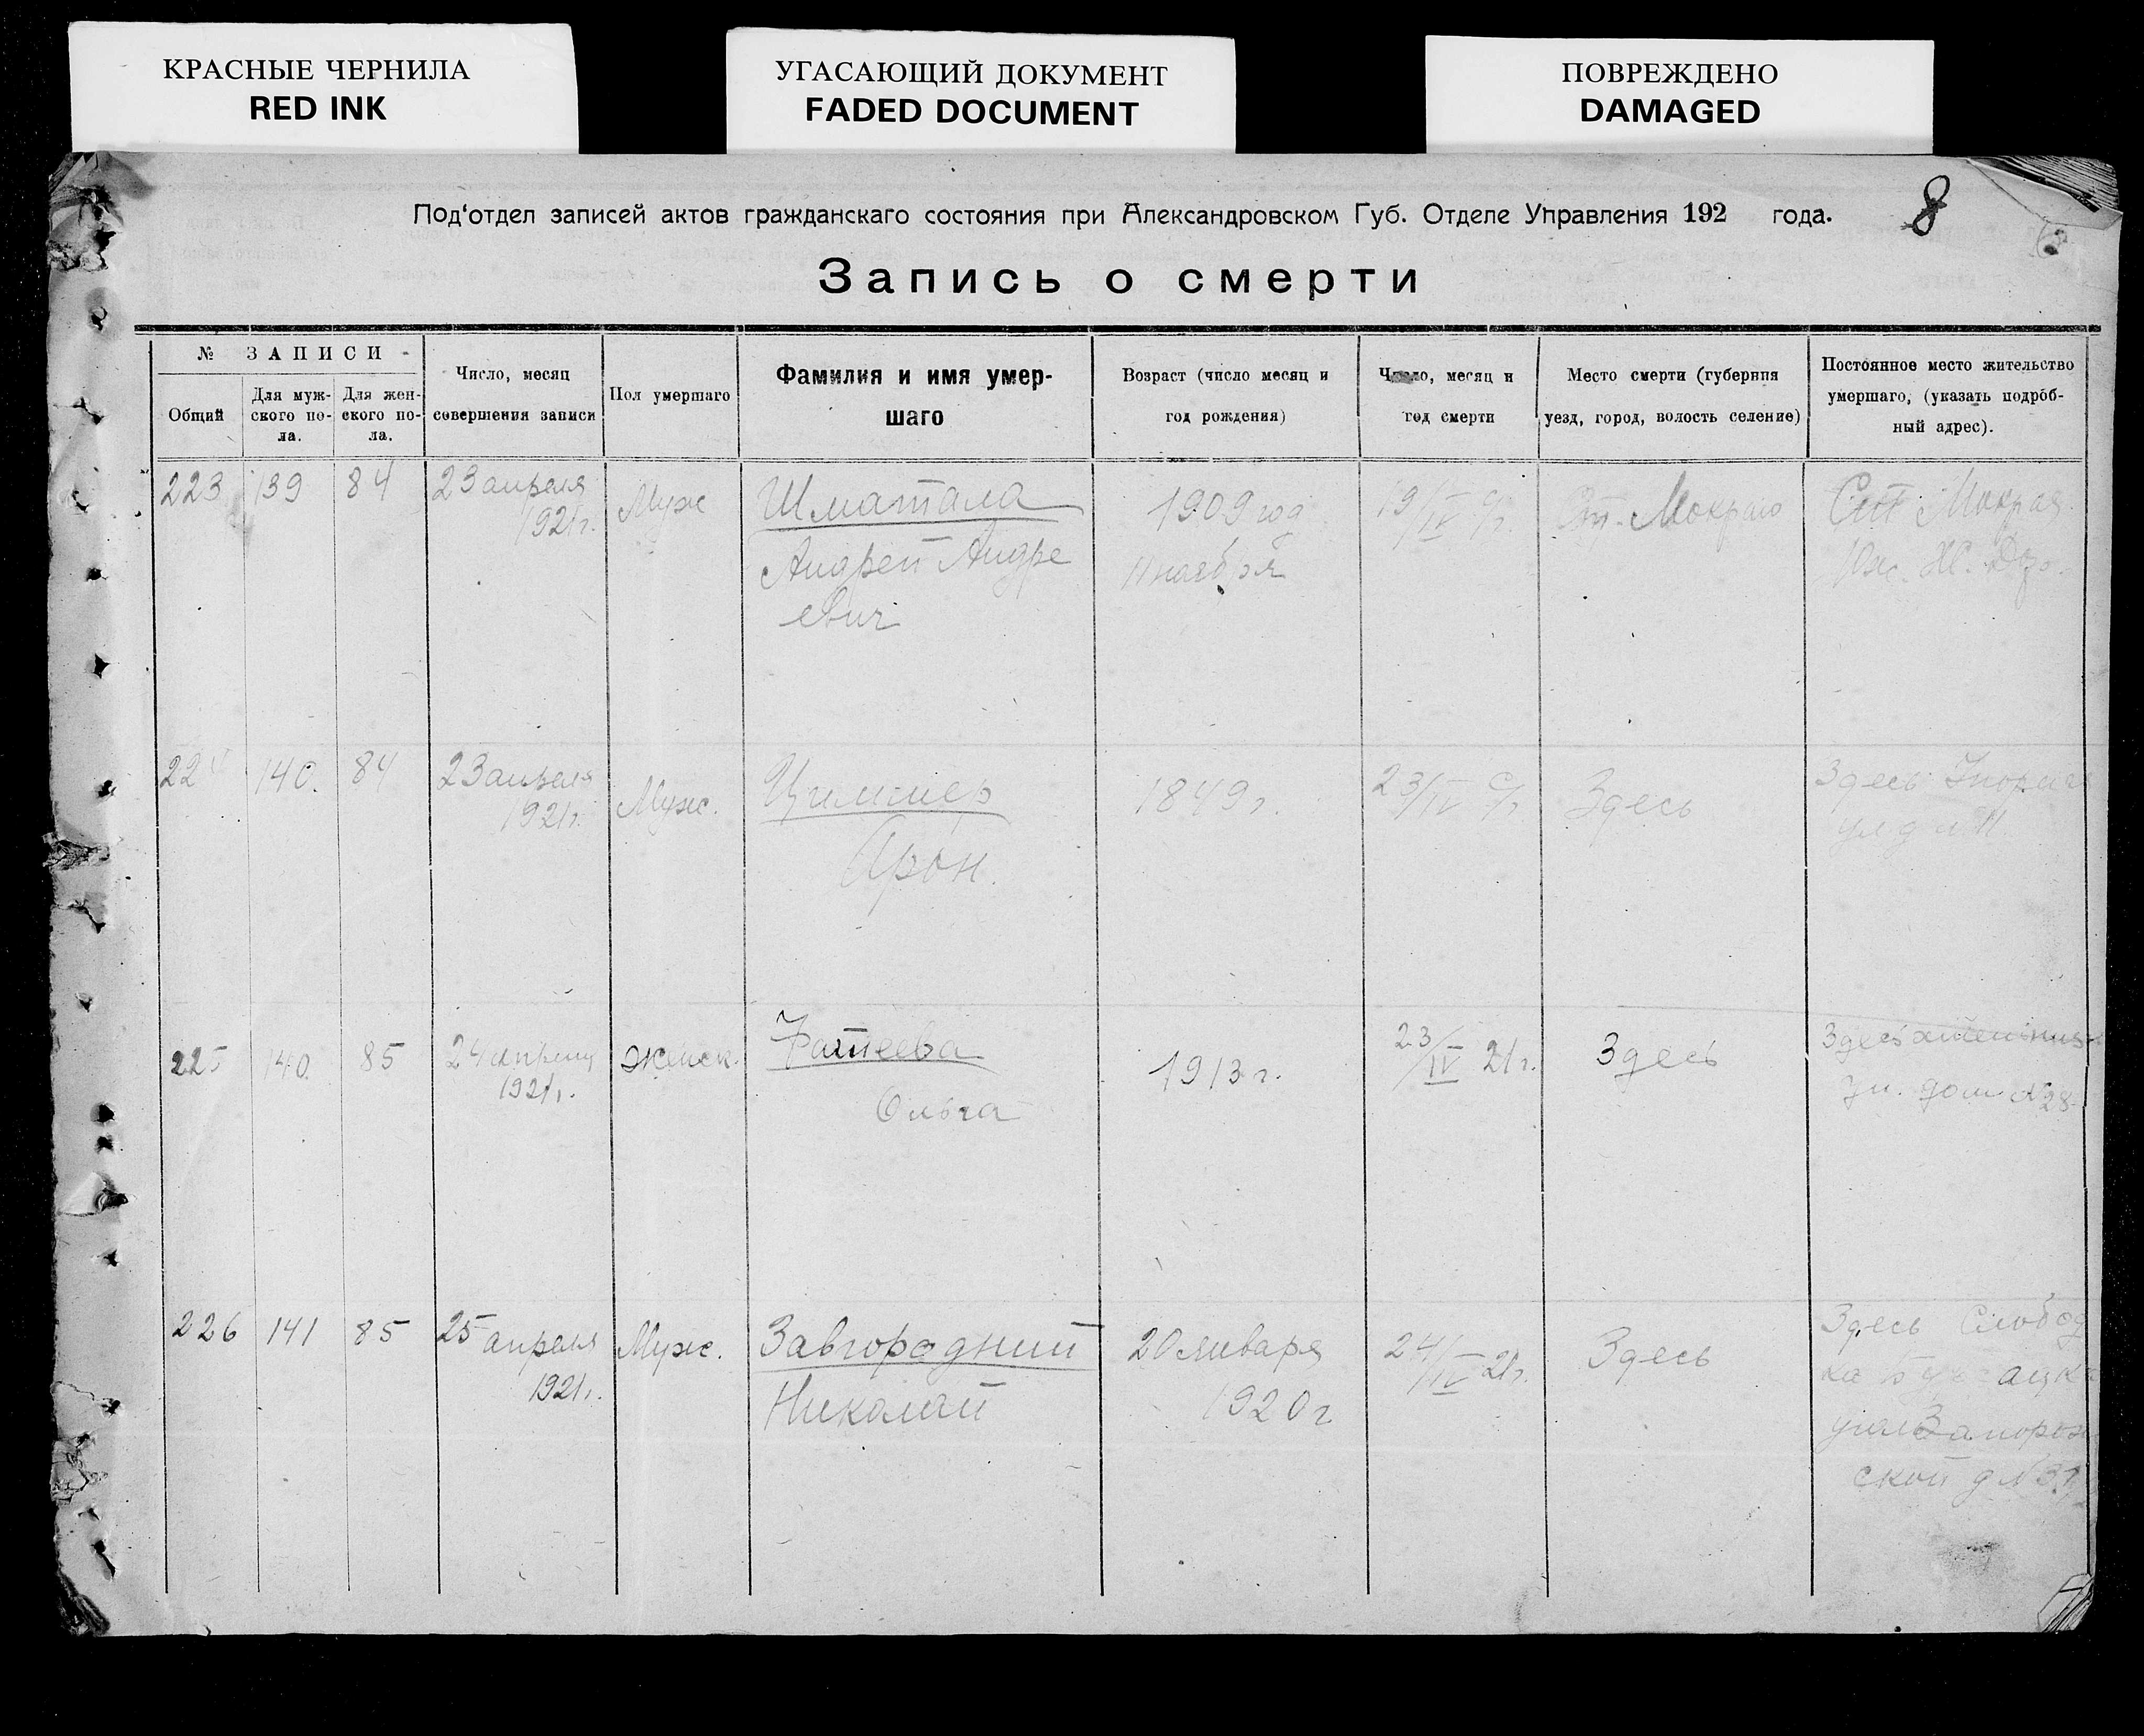 КРАСНЫЕ ЧЕРНИЛА
RED INK
УГАСАЮЩИЙ ДОКУМЕНТ
FADED DOCUMENT
ПОВРЕЖДЕНО
DAMAGED
Под'отдел записей актов гражданскаго состояния при Александровском Губ. Отделе Управления 192 года.
8
Запись о смерти
№ ЗАПИСИ
Общий
Для муж-
ского по-
ла.
Для жен-
ского по-
ла.
Число, месяц
совершения записи
Пол умершаго
Фамилия и имя умер-
шаго
Возраст (число месяц и
год рождения)
Число, месяц и
год смерти
Место смерти (губерния
уезд, город, волость селение)
Постоянное место жительство
умершаго, (указать подроб-
ный адрес).
223
139
84
23 апреля
1921г.
Муж
Шматала
Андрей Андре
евич
1909 год
11 ноября
19/IV с/г.
Мокрая
Ст Мокрая
224
140.
84
23 апреля
1921г.
Муж.
Циммер
Арон.
1849 г.
23/IV с/г
Здесь
Здесь
225
140
85
24 апреля
1921г.
Женск.
Фатеева
Ольга
1913 г.
23/IV 21г.
Здесь
Здесь
ул. дом №28
226
141
85
25 апреля
1921г.
Муж.
Завгородний
Николай
20 января
1920 г
24/IV 21г.
Здесь
Здесь Слобод
ка
угол Запорож
ской д №37